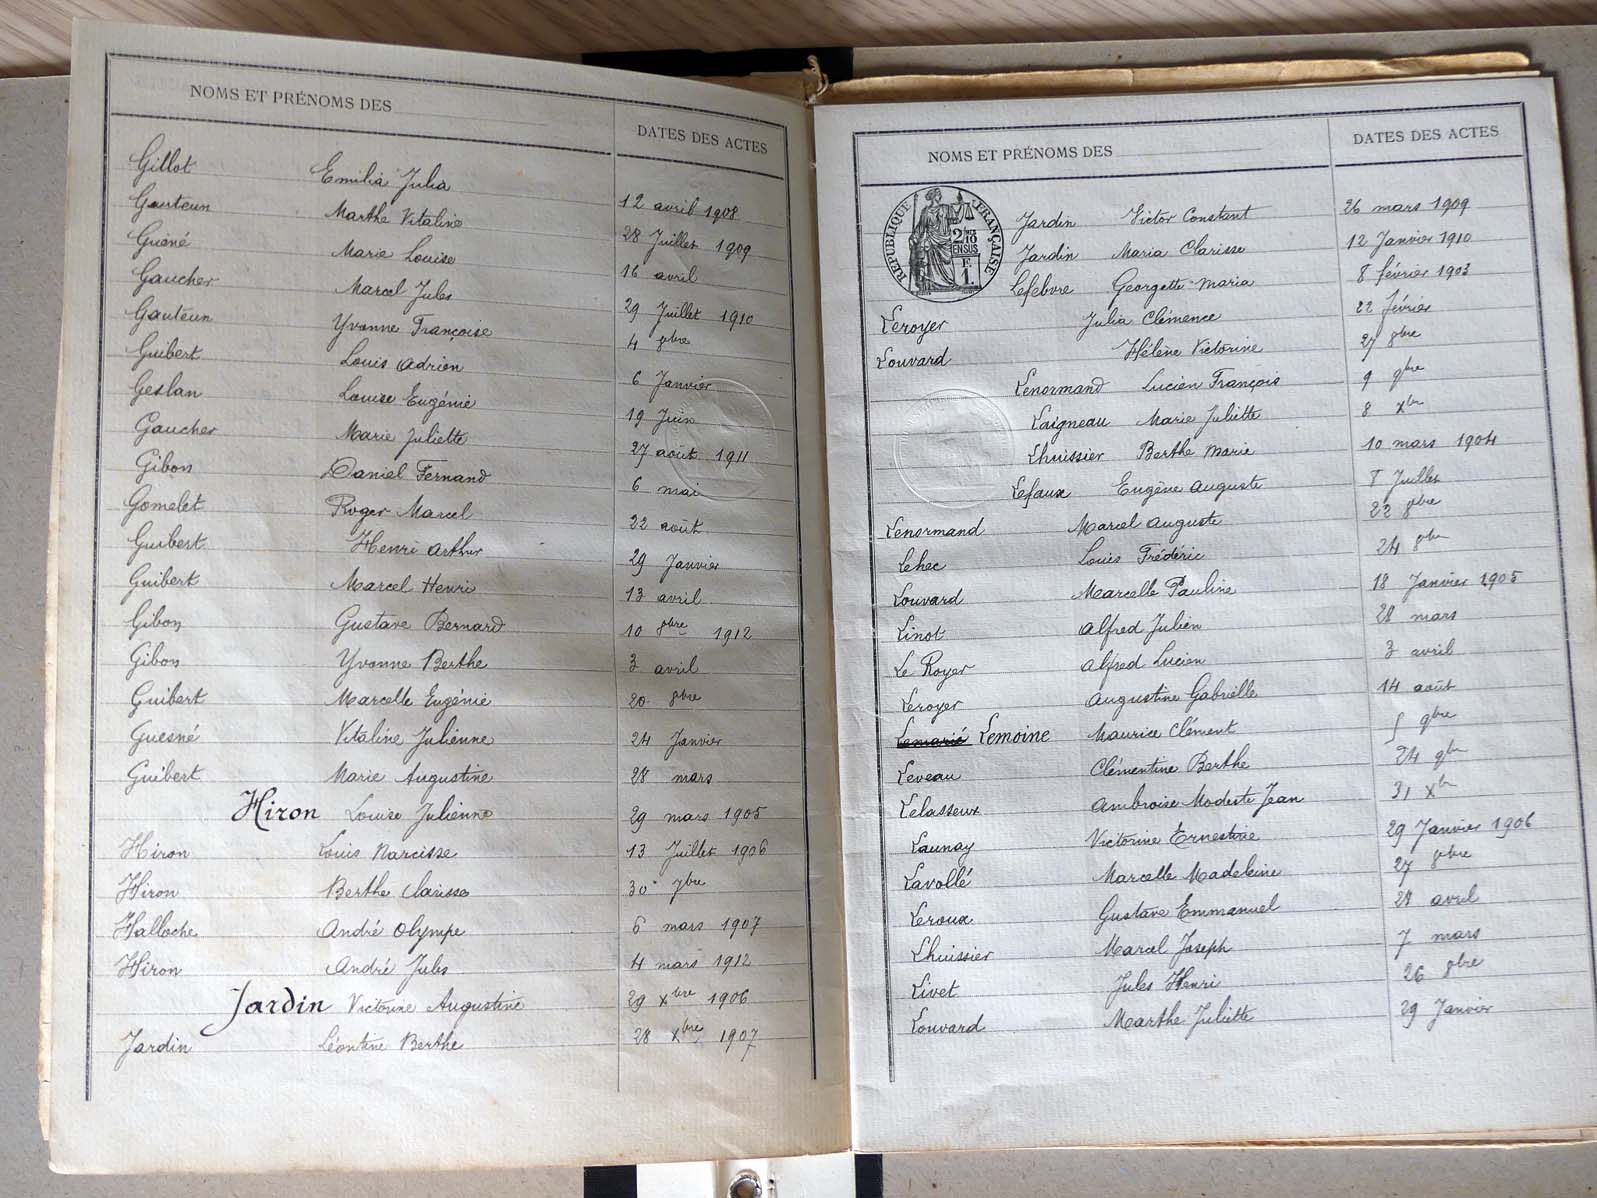 NOMS ET PRÉNOMS DES
DATES DES ACTES
Gillot Emilia Julia 12 avril 1908
Gauteun Marthe Vitaline 28 Juillet 1909
Guéné Marie Louise 16 avril
Gaucher Marcel Jules 29 Juillet 1910
Gauteun Yvonne Françoise 4 8bre
Guibert Louis Adrien 6 Janvier
Geslan Louise Eugénie 19 Juin
Gaucher Marie Juliette 27 août 1911
Gibon Daniel Fernand 6 mai
Gomelet Roger Marcel 22 août
Guibert Henri Arthur 29 Janvier
Guibert Marcel Henri 13 avril
Gibon Gustave Bernard 10 8bre 1912
Gibon Yvonne Berthe 3 avril
Guibert Marcelle Eugénie 20 8bre
Guesné Vitaline Julienne 24 Janvier
Guibert Marie Augustine 28 mars
Hiron Louise Julienne 29 mars 1905
Hiron Louis Narcisse 13 Juillet 1906
Hiron Berthe Clarisse 30 7bre
Halloche André Olympe 6 mars 1907
Hiron André Jules 4 mars 1912
Jardin Victorine Augustine 29 Xbre 1906
Jardin Léontine Berthe 28 Xbre 1907
NOMS ET PRÉNOMS DES
DATES DES ACTES
RÉPUBLIQUE FRANÇAISE
2/10
EN SUS
F. 1.
Jardin Victor Constant 26 mars 1909
Jardin Maria Clarisse 12 Janvier 1910
Lefebvre Georgette Maria 8 février 1903
Leroyer Julia Clémence 22 février
Louvard Hélène Victorine 27 8bre
Lenormand Lucien François 9 9bre
Laigneau Marie Juliette 8 Xbre
Lhuissier Berthe Marie 10 mars 1904
Lefaux Eugène Auguste 8 Juillet
Lenormand Marcel Auguste 23 8bre
Lehec Louis Frédéric 24 8bre
Louvard Marcelle Pauline 18 Janvier 1905
Linot Alfred Julien 28 mars
Le Royer Alfred Lucien 3 avril
Leroyer Augustine Gabrielle 14 août
Lemarié Lemoine Maurice Clément 5 9bre
Leveau Clémentine Berthe 24 9bre
Lelasseux Ambroise Modeste Jean 31 Xbre
Launay Victorine Ernestine 29 Janvier 1906
Lavollé Marcelle Madeleine 27 8bre
Leroux Gustave Emmanuel 28 avril
Lhuissier Marcel Joseph 7 mars
Livet Jules Henri 26 8bre
Louvard Marthe Juliette 29 Janvier